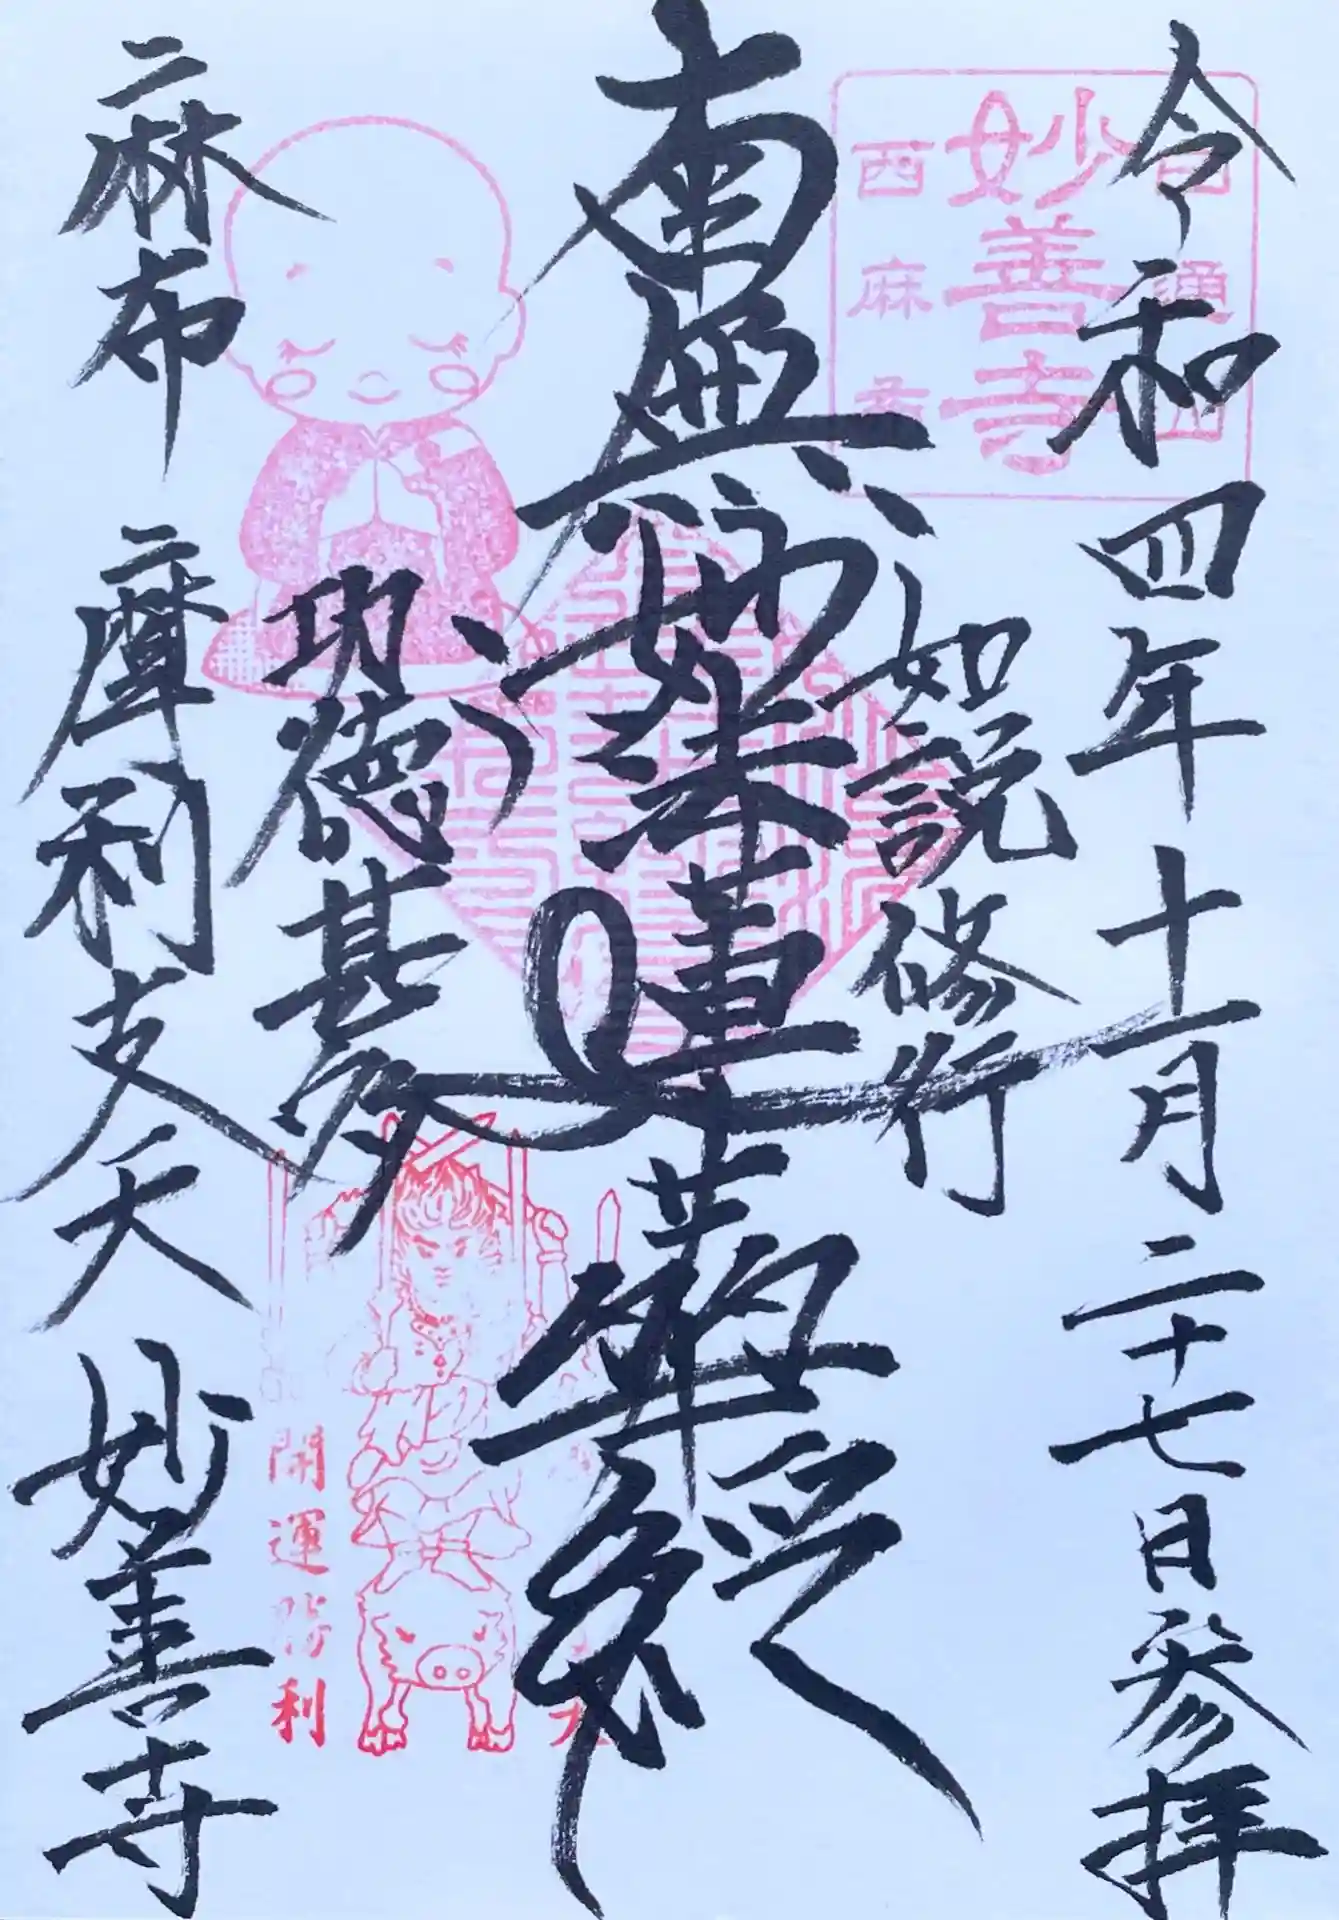 令和四年十一月二十七日参拝
如説修行
南無妙法蓮華経
功徳甚多
麻布 摩利支天 妙善寺
妙善寺
西麻布
開運勝利